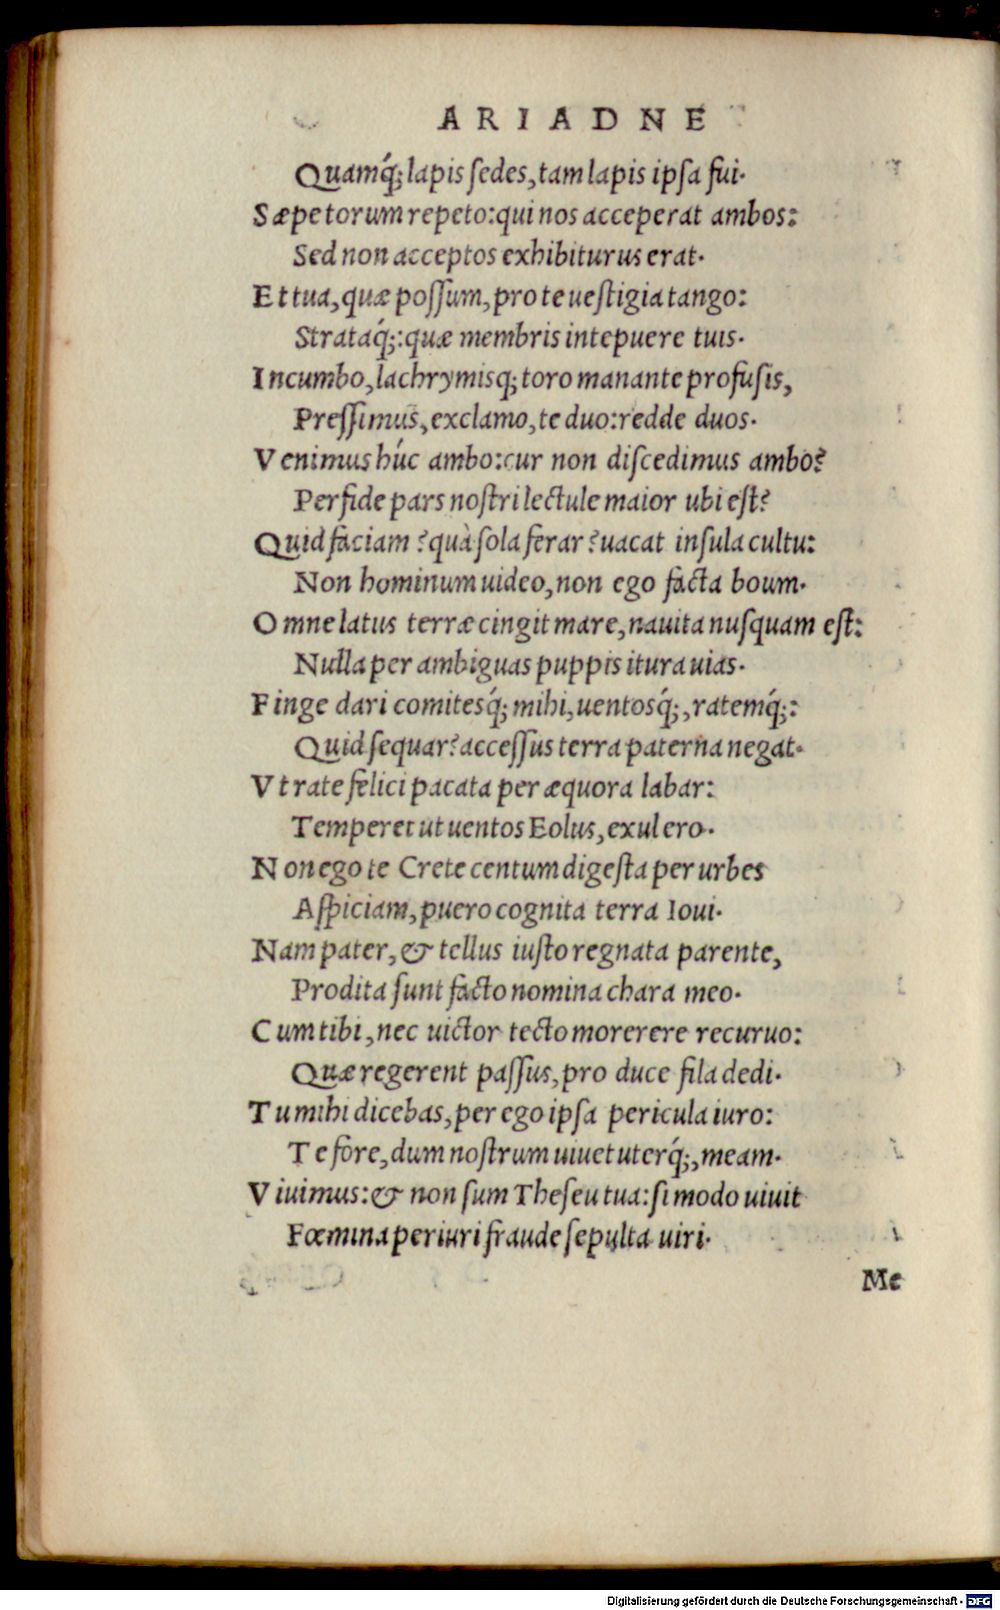 ARIADNE
Quamq́; lapis ſedes, tam lapis ipſa fui.
Sæpe torum repeto: qui nos acceperat ambos:
Sed non acceptos exhibiturus erat.
Et tua, quæ poſſum, pro te ueſtigia tango:
Strataq́;: quæ membris intepuere tuis.
Incumbo, lachrymisq; toro manante profuſis,
Preſſimus, exclamo, te duo: redde duos.
Venimus húc ambo: cur non diſcedimus ambo?
Perfide pars noſtri lectule maior ubi eſt?
Quid faciam? quà ſola ferar? uacat inſula cultu:
Non hominum uideo, non ego facta boum.
Omne latus terræ cingit mare, nauita nuſquam eſt:
Nulla per ambiguas puppis itura uias.
Finge dari comitesq́; mihi, uentosq́;, ratemq́;:
Quid ſequar? acceſſus terra paterna negat.
Vt rate felici pacata per æquora labar:
Temperet ut uentos Eolus, exul ero.
Non ego te Crete centum digeſta per urbes
Aſpiciam, puero cognita terra Ioui.
Nam pater, & tellus iuſto regnata parente,
Prodita ſunt facto nomina chara meo.
Cum tibi, nec uictor tecto morerere recuruo:
Quæ regerent paſſus, pro duce fila dedi.
Tu mihi dicebas, per ego ipſa pericula iuro:
Te fore, dum noſtrum uiuet uterq́;, meam.
Viuimus: & non ſum Theſeu tua: ſi modo uiuit
Fœmina periuri fraude ſepulta uiri.
Me
Digitalisierung gefördert durch die Deutsche Forschungsgemeinschaft - DFG